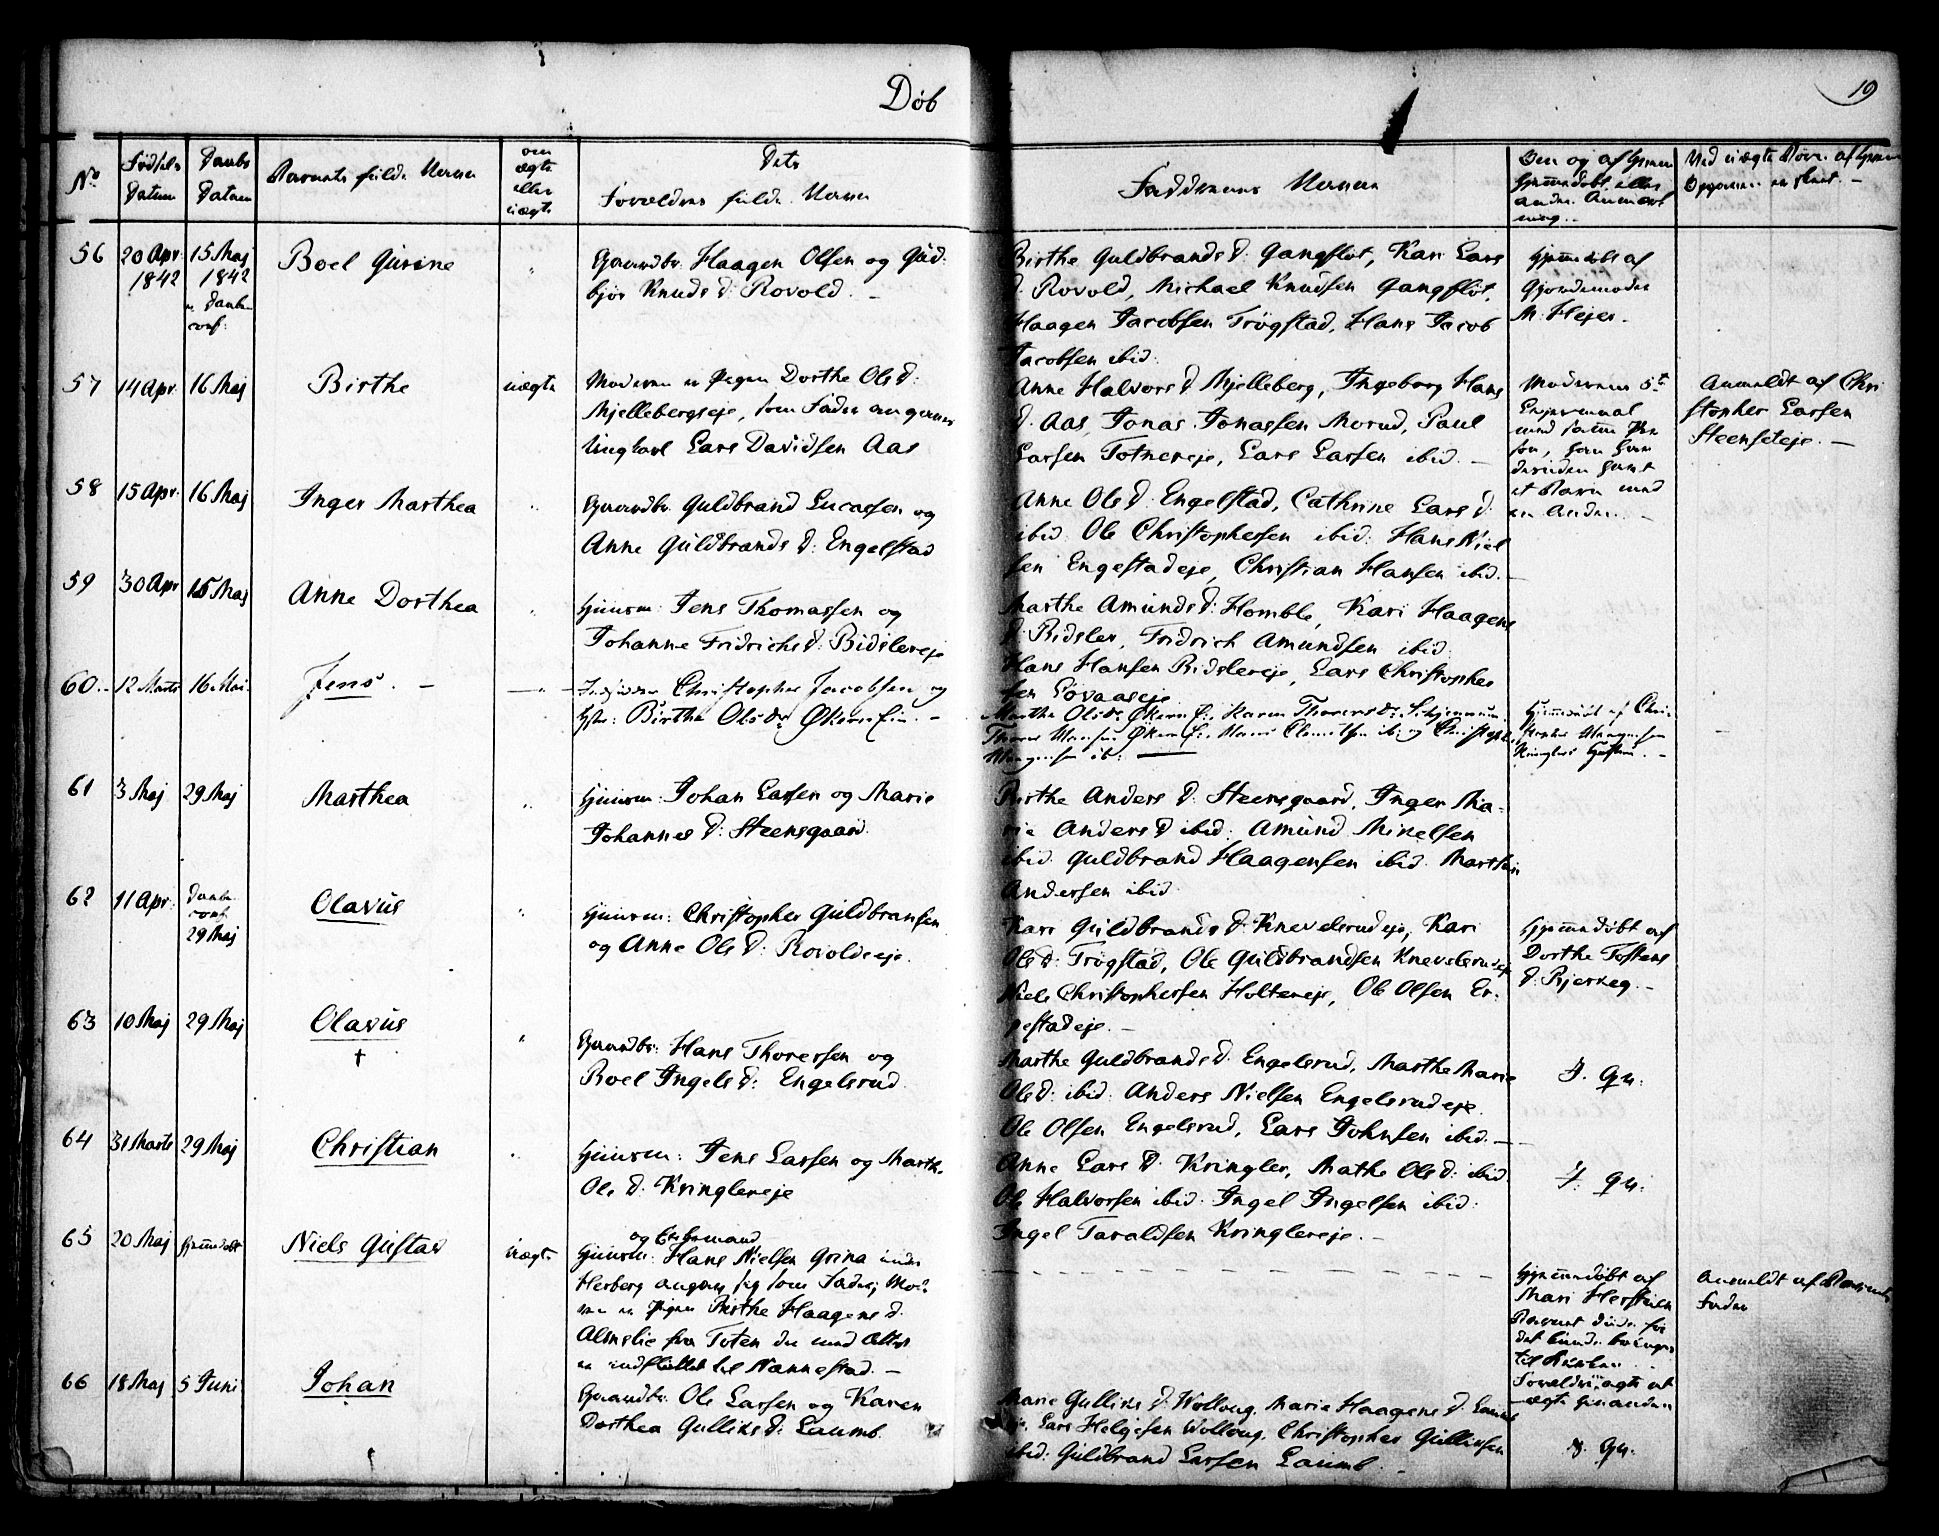 Døb
19
No
Fødsels Datum
Daabs Datum
Barnets fulde Navn
om ægte eller uægte
Dets
Forældres fulde Navn
Faddernes Navne
Ved uægte Børn af hvem
56
20 Apr 1842
15 Maj 1842
Daabs conf:
Boel Gurine
"
Gaardbr. Haagen Olsen og Gud-
bjør Knuds D: Rovold. –
Birthe Guldbrands D: Gangfløt, Kari Lars
D. Rovold, Michael Knudsen Gangfløt,
Haagen Jacobsen Trøgstad, Hans Jacob
Jacobsen ibid:
Hjemmedøbt af
Gjordemoder
M. Hejer.
57
14 Apr
16 Maj
Birthe
uægte
Moderen er Pigen Dorthe Ols D:
Mjellebergseje, som Fader angives
Ungkarl Lars Davidsen Aas
Anne Halvors D Mjelleberg, Ingeborg Hans
D. Aas, Jonas Jonassen Morud, Paul
Larsen Totnereje, Lars Larsen ibid. –
Moderens 5te
Lejermaal
med samme Per
son, han har
desuden havt
et Barn med
en Anden. –
Anmeldt af Chri
stopher Larsen
Steenseteje. –
58
15 Apr.
16 Maj
Inger Marthea
"
Gaardbr. Guldbrand Lucassen og
Anne Guldbrands D: Engelstad
Anne Ols D. Engelstad, Cathrine Lars D.
ibid. Ole Christophersen ibid: Hans Niel
sen Engestadeje, Christian Hansen ibid. –
59
30 Apr
16 Maj
Anne Dorthea
"
Huusm: Jens Thomassen og
Johanne Fridrichs D: Bidslereje
Marthe Amunds D: Homble, Kari Haagens
D: Bidsler, Fridrich Amundsen ibid.
Hans Hansen Bidslereje, Lars Christopher
sen Løvaaseje
60.
12 Marts
16 Mai.
Jens. –
"
Christopher Jacobsen og
Birthe Olsdr Økern
Marthe Olsdr Økern
Hjemmedøbt af Chri-
61
3 Maj
29 Maj
Marthea
"
Huusm: Johan Larsen og Marie
Johannes D: Steensgaard.
Birthe Anders D: Steensgaard, Inger Ma-
rie Anders D ibid: Amund Mikelsen
ibid. Guldbrand Haagensen ibid. Marthin
Andersen ibid.
62
11 Apr.
Daabs conf. 29 Maj
Olavus
"
Huusm: Christopher Guldbransen
og Anne Ols D: Rovoldeje.
Kari Guldbrands D. Knevelsrudeje, Kari
Ols D: Trøgstad, Ole Guldbrandsen Knevelsrudeje
Niels Christophersen Holtereje, Ole Olsen En-
gestadeje. –
Hjemmedøbt af
Dorthe Tostens
D. Bjerkeg. –
63
10 Maj
29 Maj
Olavus
†
"
Gaardbr: Hans Thoresen og
Boel Ingels D: Engelsrud.
Marthe Guldbrands D. Engelsrud, Marthe Marie
Ols D: ibid. Anders Nielsen Engelsrudeje.
Ole Olsen Engelsrud, Lars Johnsen ibid. –
64
31 Marts
29 Maj
Christian
"
Huusm: Jens Larsen og Marthe
Ols D: Kringlereje
Anne Lars D. Kringler, Mathe Ols D: ibid
Ole Halvorsen ibid. Ingel Ingelsen ibid:
Ingel Taraldsen Kringlereje. –
65
20 Maj
hjemdøbt
Niels Gustav
uægte
og Enkemand
Huusm: Hans Nielsen Grina under
Herberg angives sig som Fader, Mo-
ren er Pigen Birthe Haagens D.
Almelie fra Toten der med Attest
er indflyttet til Nannestad. –
Hjemmedøbt af
Mari Hersteen
Barnet døde før
det kunde bringes
til Kirken.
Anmeldt af Barnets
Fader
66
18 Maj
5 Juni
Johan
Gaardbr. Ole Larsen og Karen
Dorthea Gulliks D: Laumb.
Marie Gulliks D. Wollaug, Marie Haagens D. Laumb
eje, Lars Helgesen Wollaug, Christopher Gulliksen
ibid: Guldbrand Larsen Laumb. –